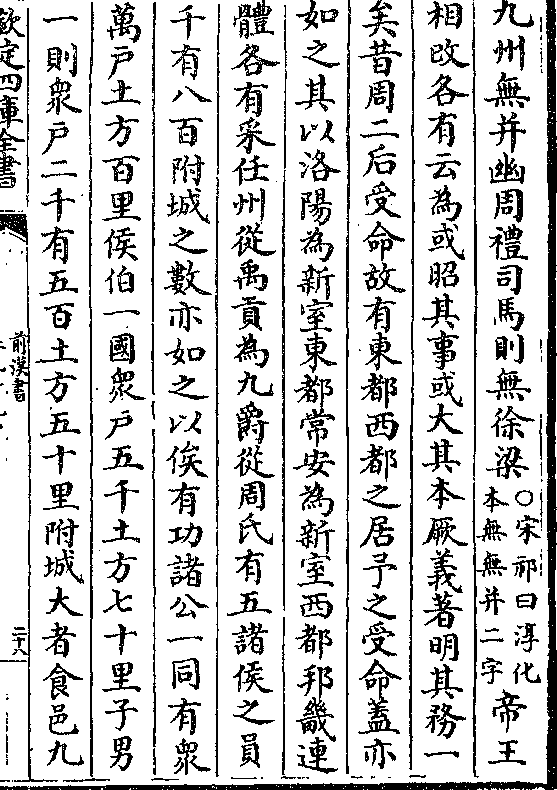 九州無并幽周禮司馬則無徐梁○宋祁曰淳化本無無并二字帝王
相改各有云為或昭其事或大其本厥義著明其務一
矣昔周二后受命故有東都西都之居予之受命蓋亦
如之其以洛陽為新室東都常安為新室西都邦畿連
體各有采任州從禹貢為九爵從周氏有五諸侯之員
千有八百附城之數亦如之以俟有功諸公一同有衆
萬戸土方百里侯伯一國衆戸五千土方七十里子男
一則衆戸二千有五百土方五十里附城大者食邑九
欽定四庫全書
前漢書
二六